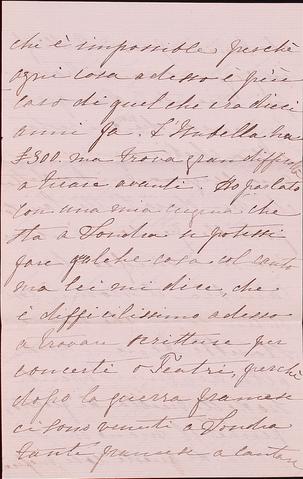 chi è impossibile perchè
ogni cosa adesso è più
caso di quel che era dieci
anni fa. L'Isabella ha
£300. ma trova gran difficoltà
a tirare avanti. Ho parlato
con una mia cugina che
sta a Londra se potessi
fare qualche cosa col canto
ma lei mi dice, che
è difficilissimo adesso
a trovare scritture per
concerti o Teatri, perchè
dopo la guerra francese
ci sono venuti a Londra
tante francese a cantare